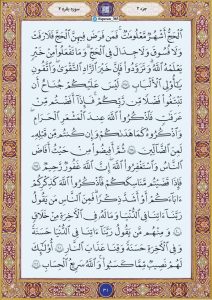 جزء ۲
سوره بقره ۲
ٱلْحَجُّ أَشْهُرٌ مَّعْلُومَٰتٌ فَمَن فَرَضَ فِيهِنَّ ٱلْحَجَّ فَلَا رَفَثَ
وَلَا فُسُوقَ وَلَا جِدَالَ فِى ٱلْحَجِّ وَمَا تَفْعَلُوا۟ مِنْ خَيْرٍ
يَعْلَمْهُ ٱللَّهُ وَتَزَوَّدُوا۟ فَإِنَّ خَيْرَ ٱلزَّادِ ٱلتَّقْوَىٰ وَٱتَّقُونِ
يَٰٓأُو۟لِى ٱلْأَلْبَٰبِ ۝١٩٧ لَيْسَ عَلَيْكُمْ جُنَاحٌ أَن
تَبْتَغُوا۟ فَضْلًا مِّن رَّبِّكُمْ فَإِذَآ أَفَضْتُم مِّنْ
عَرَفَٰتٍ فَٱذْكُرُوا۟ ٱللَّهَ عِندَ ٱلْمَشْعَرِ ٱلْحَرَامِ
وَٱذْكُرُوهُ كَمَا هَدَىٰكُمْ وَإِن كُنتُم مِّن قَبْلِهِۦ
لَمِنَ ٱلضَّآلِّينَ ۝١٩٨ ثُمَّ أَفِيضُوا۟ مِنْ حَيْثُ أَفَاضَ
ٱلنَّاسُ وَٱسْتَغْفِرُوا۟ ٱللَّهَ إِنَّ ٱللَّهَ غَفُورٌ رَّحِيمٌ ۝١٩٩
فَإِذَا قَضَيْتُم مَّنَٰسِكَكُمْ فَٱذْكُرُوا۟ ٱللَّهَ كَذِكْرِكُمْ
ءَابَآءَكُمْ أَوْ أَشَدَّ ذِكْرًا فَمِنَ ٱلنَّاسِ مَن يَقُولُ
رَبَّنَآ ءَاتِنَا فِى ٱلدُّنْيَا وَمَا لَهُۥ فِى ٱلْءَاخِرَةِ مِنْ خَلَٰقٍ
۝٢٠٠ وَمِنْهُم مَّن يَقُولُ رَبَّنَآ ءَاتِنَا فِى ٱلدُّنْيَا حَسَنَةً
وَفِى ٱلْءَاخِرَةِ حَسَنَةً وَقِنَا عَذَابَ ٱلنَّارِ ۝٢٠١ أُو۟لَٰٓئِكَ
لَهُمْ نَصِيبٌ مِّمَّا كَسَبُوا۟ وَٱللَّهُ سَرِيعُ ٱلْحِسَابِ ۝٢٠٢
۳۱